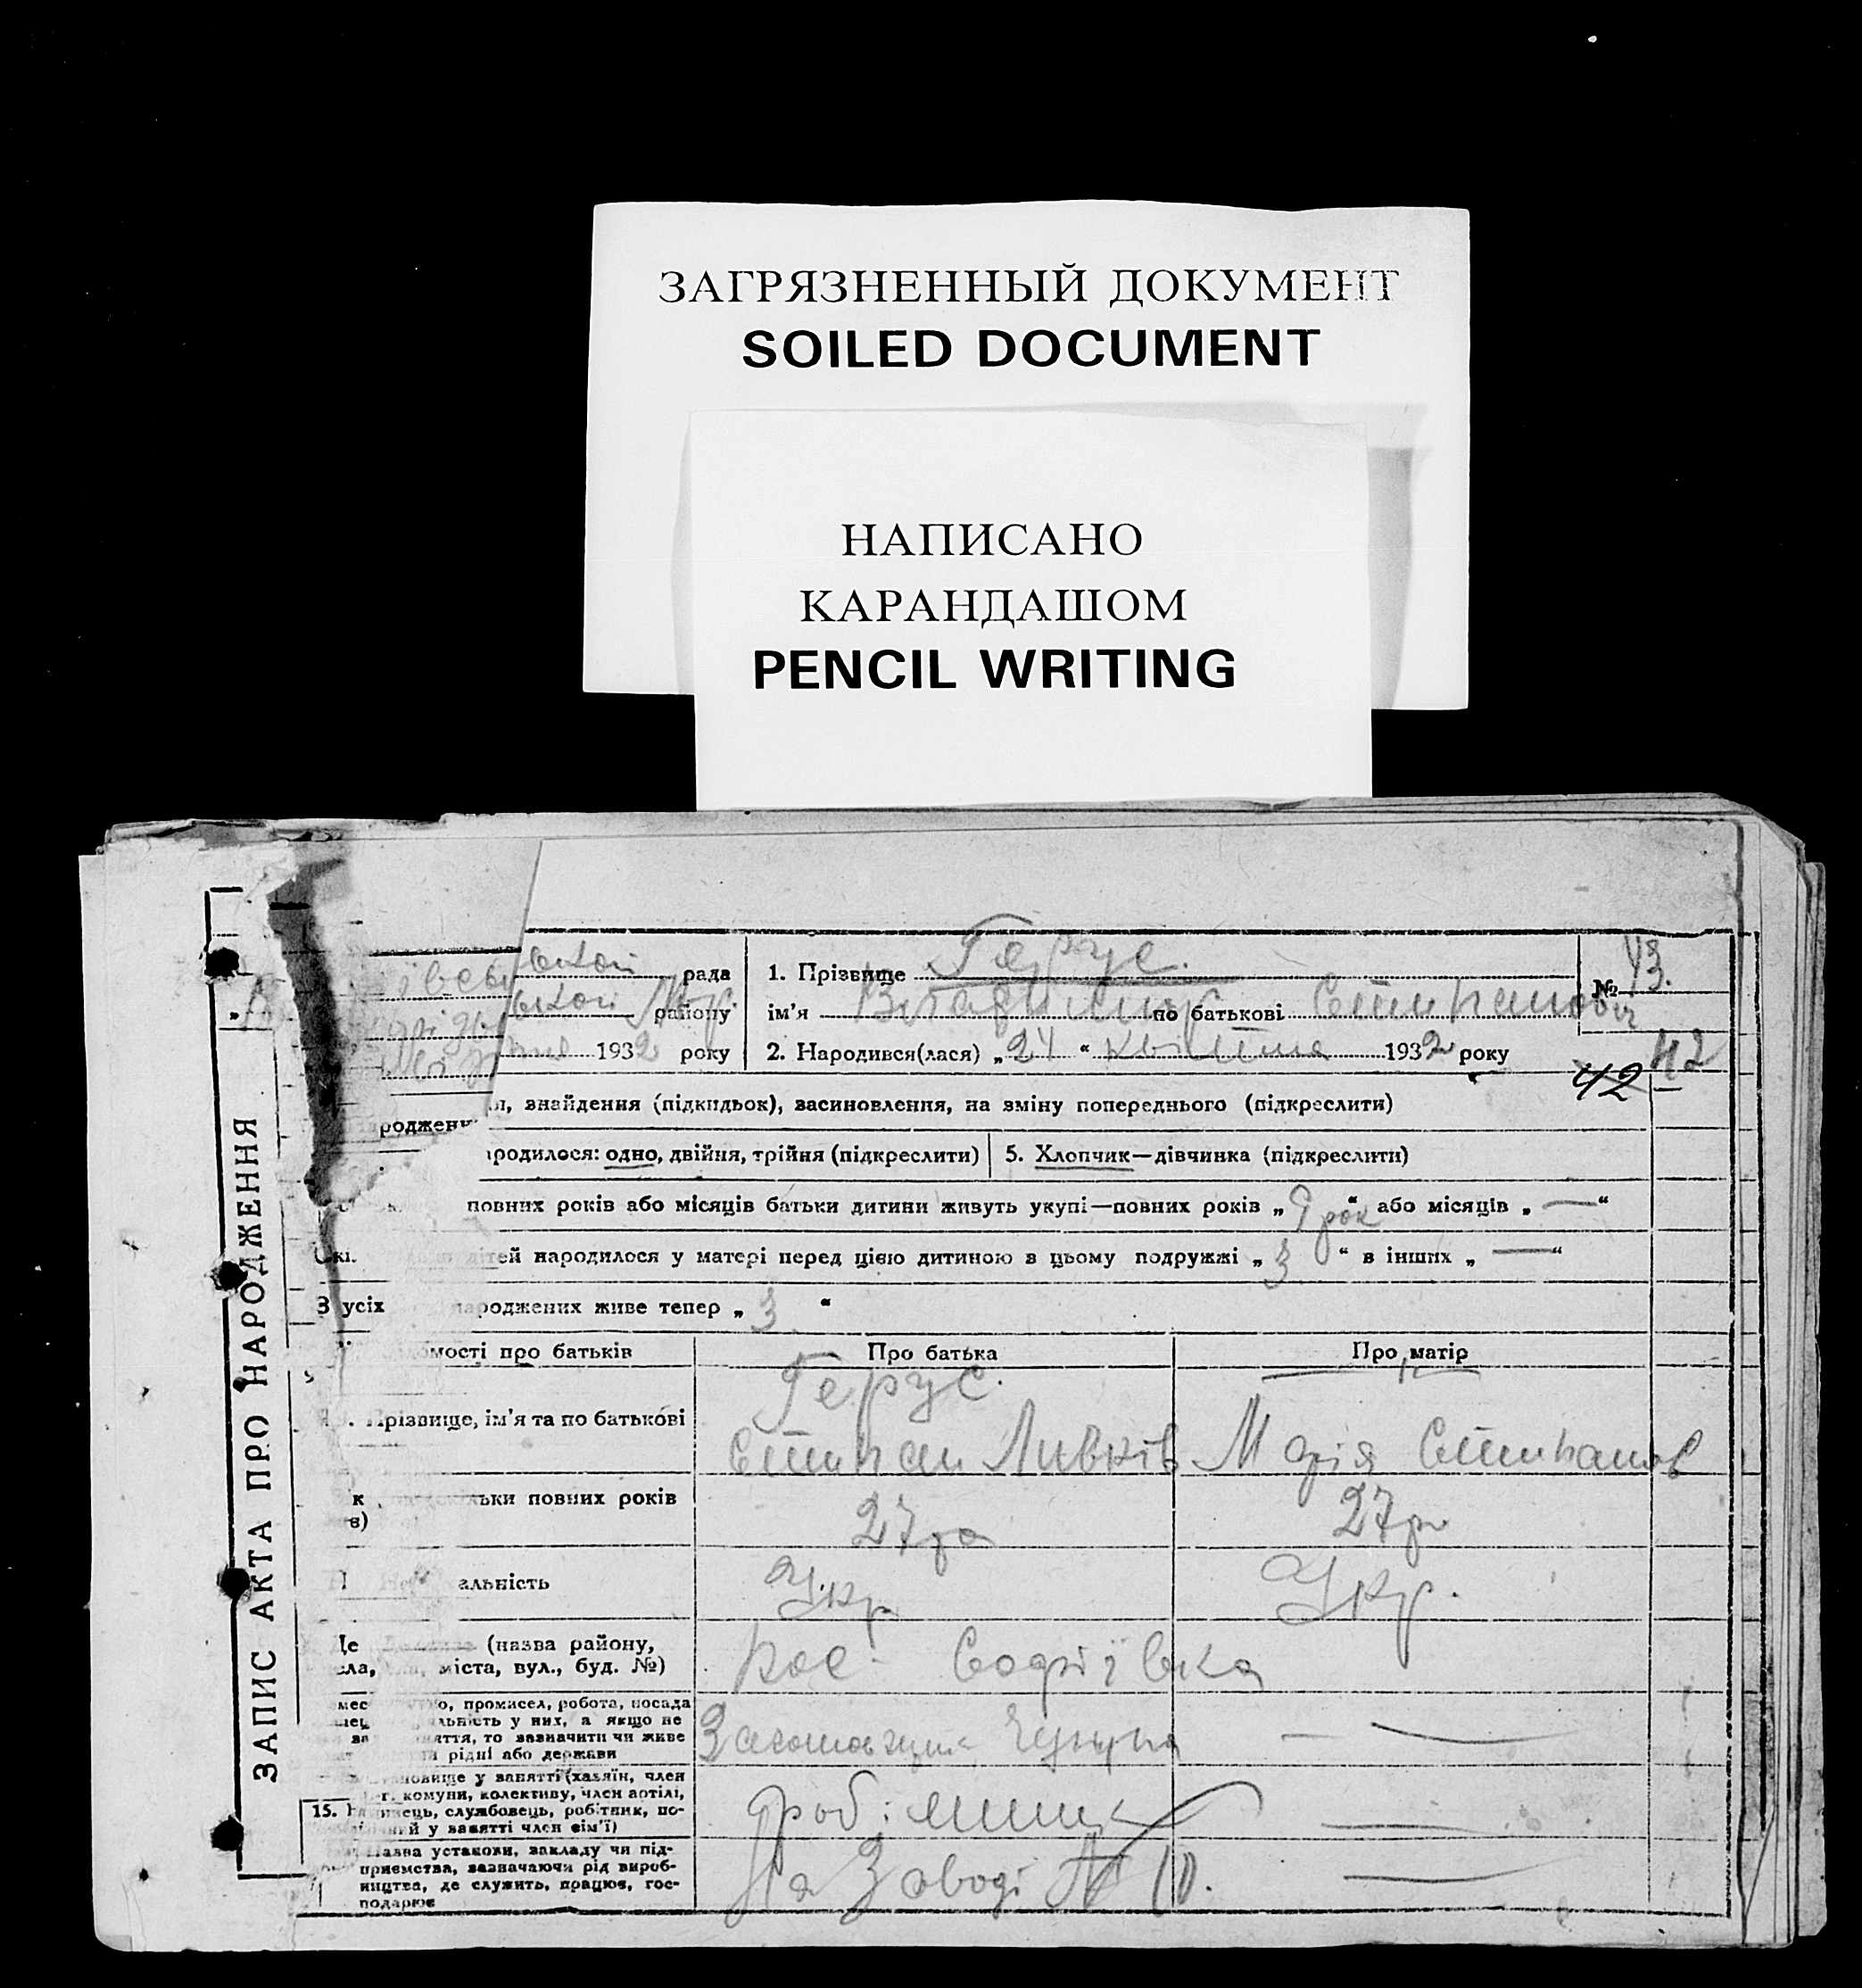 ЗАГРЯЗНЕННЫЙ ДОКУМЕНТ
SOILED DOCUMENT
НАПИСАНО
КАРАНДАШОМ
PENCIL WRITING
ЗАПИС АКТА ПРО НАРОДЖЕННЯ
ської рада
ської району
1932 року
1. Прізвище Герус.
ім'я Владимир по батькові Степанович
2. Народився(лася) „24“ квітня 1932 року
№ 43.
42 42
родженн
я, знайдення (підкидьок), засиновлення, на зміну попереднього (підкреслити)
народилося: одно, двійня, трійня (підкреслити)
5. Хлопчик—дівчинка (підкреслити)
повних років або місяців батьки дитини живуть укупі—повних років „9 рок“ або місяців „—“
дітей народилося у матері перед цією дитиною в цьому подружжі „3“ в інших „—“
З усіх народжених живе тепер „3“
домості про батьків
Про батька
Про матір
Прізвище, ім'я та по батькові
Герус.
Степан Левків
Марія Степанов
скільки повних років
27
27
альність
Укр
Укр.
Де (назва району,
села, міста, вул., буд. №)
Рос. Софіївка
о, промисел, робота, посада
альність у них, а якщо не
няття, то зазначити чи живе
рідні або держави
—
становище у занятті (хазяїн, член
комуни, колективу, член артілі,
15. службовець, робітник, по-
й у занятті член сім'ї)
—
Назва установи, закладу чи під-
приємства, зазначаючи рід вироб-
ництва, де служить, працює, гос-
подарює
На Заводі № 10.
—